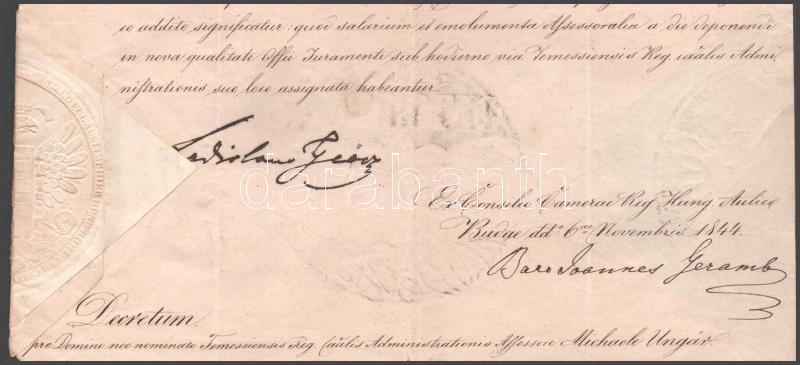 eo addito significatur: quod salarium et emolumenta Assessoralia a die deponendi
in nova qualitate Officii Juramenti sub hodierno via Temessiensis Reg. caalis Admi,
nistrationis suo loco assignata habeantur.
Ladislaus
Ex Consilio Camerae Reg. Hung. Aulicae
Budae ddto 6ta Novembris 1844.
Baro Joannes Geramb
Decretum.
pro Domino neo nominato Temessiensis Reg. Caalis Administrationis Assessore Michaele Ungár.
darabanth